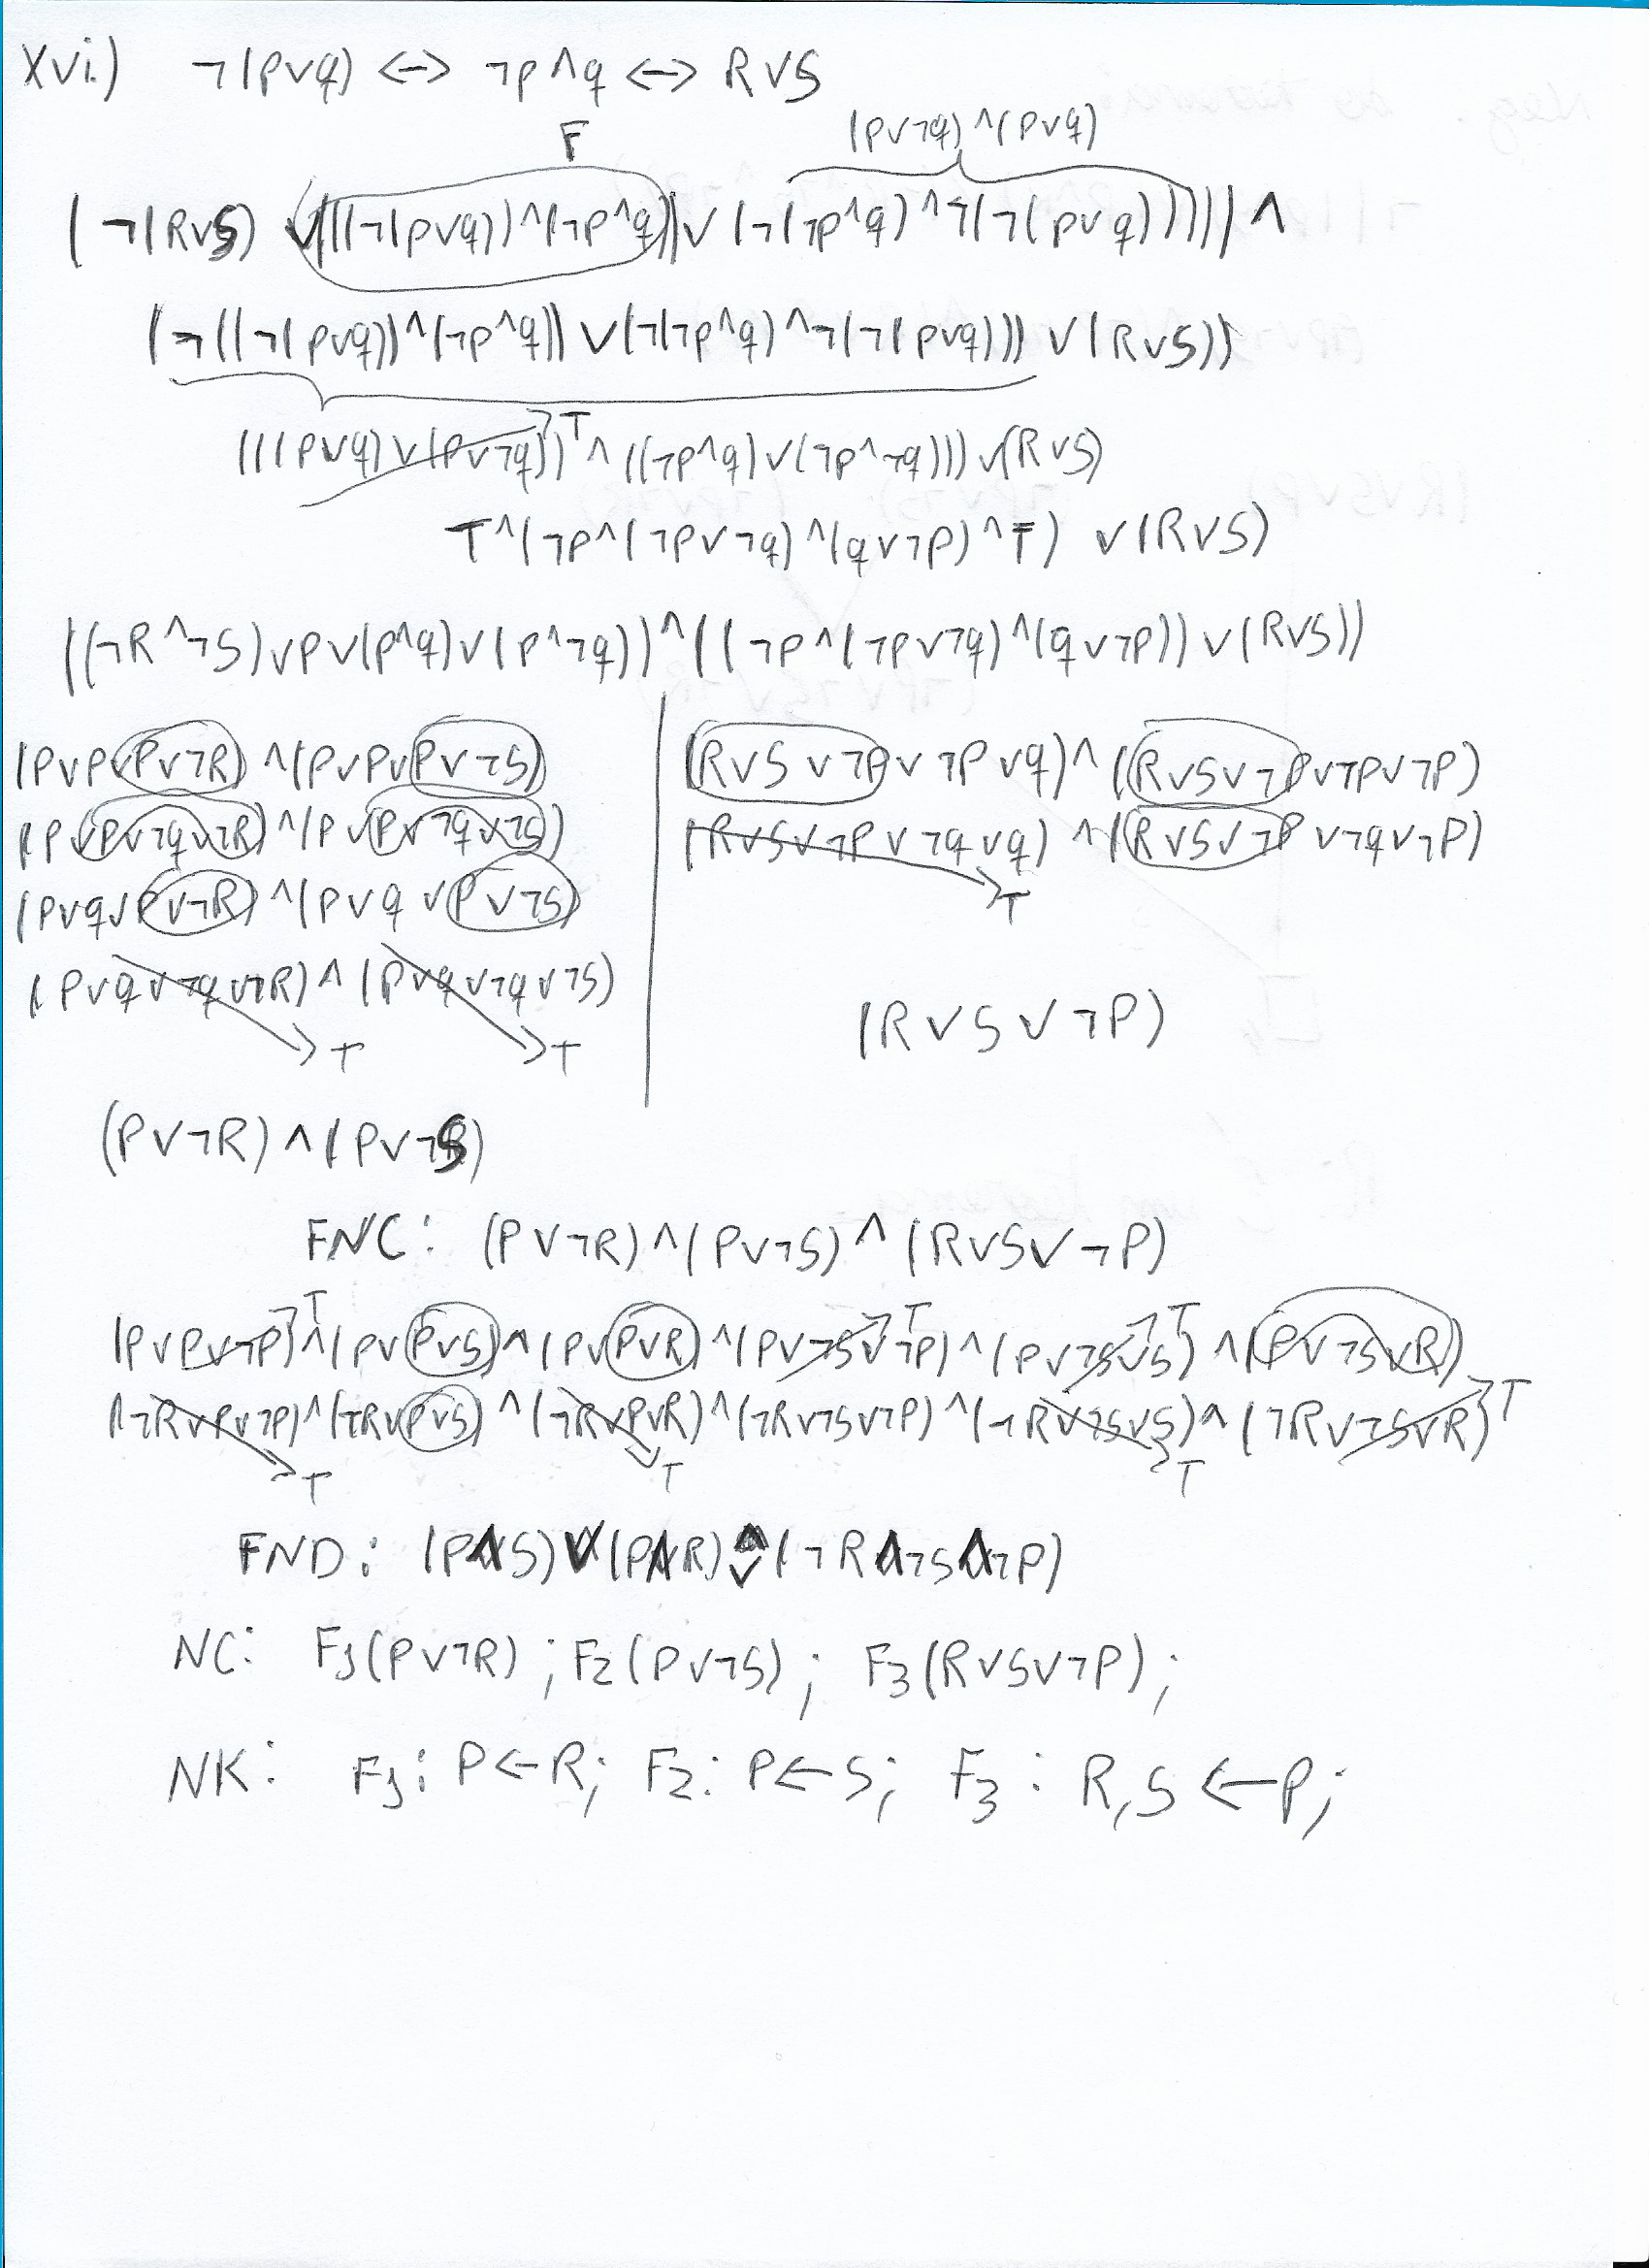 xvi.) ¬(p∨q) <-> ¬p∧q <-> R∨S
F (p∨¬q)∧(p∨q)
(¬(R∨S) ∨(((¬(p∨q))∧(¬p∧q))∨(¬(¬p∧q)∧¬(¬(p∨q)))))∧
(¬((¬(p∨q))∧(¬p∧q))∨(¬(¬p∧q)∧¬(¬(p∨q)))∨(R∨S))
(((p∨q)∨(p∨¬q))→T∧((¬p∧q)∨(¬p∧¬q)))∨(R∨S)
T∧(¬p∧(¬p∨¬q)∧(q∨¬p)∧T) ∨(R∨S)
((¬R∧¬S)∨p∨(p∧q)∨(p∧¬q))∧((¬p∧(¬p∨¬q)∧(q∨¬p))∨(R∨S))
(p∨p∨p∨¬R)∧(p∨p∨p∨¬S) (R∨S∨¬p∨¬p∨q)∧(R∨S∨¬p∨¬p∨¬p)
(p∨p∨¬q∨¬R)∧(p∨p∨¬q∨¬S) (R∨S∨¬p∨¬q∨q)∧(R∨S∨¬p∨¬q∨¬p)
→T
(p∨q∨p∨¬R)∧(p∨q∨p∨¬S)
(p∨q∨¬q∨¬R)∧(p∨q∨¬q∨¬S) (R∨S∨¬P)
→T →T
(P∨¬R)∧(P∨¬S)
FNC: (P∨¬R)∧(P∨¬S)∧(R∨S∨¬P)
(P∨P∨¬P)→T∧(P∨P∨S)∧(P∨P∨R)∧(P∨¬S∨¬P)→T∧(P∨¬S∨S)→T∧(P∨¬S∨R)
(¬R∨P∨¬P)∧(¬R∨P∨S)∧(¬R∨P∨R)∧(¬R∨¬S∨¬P)∧(¬R∨¬S∨S)∧(¬R∨¬S∨R)→T
→T →T →T
FND: (P∧S)∨(P∧R)∨(¬R∧¬S∧¬P)
NC: F1(P∨¬R); F2(P∨¬S); F3(R∨S∨¬P);
NK: F1: P<-R; F2: P<-S; F3: R,S<-P;